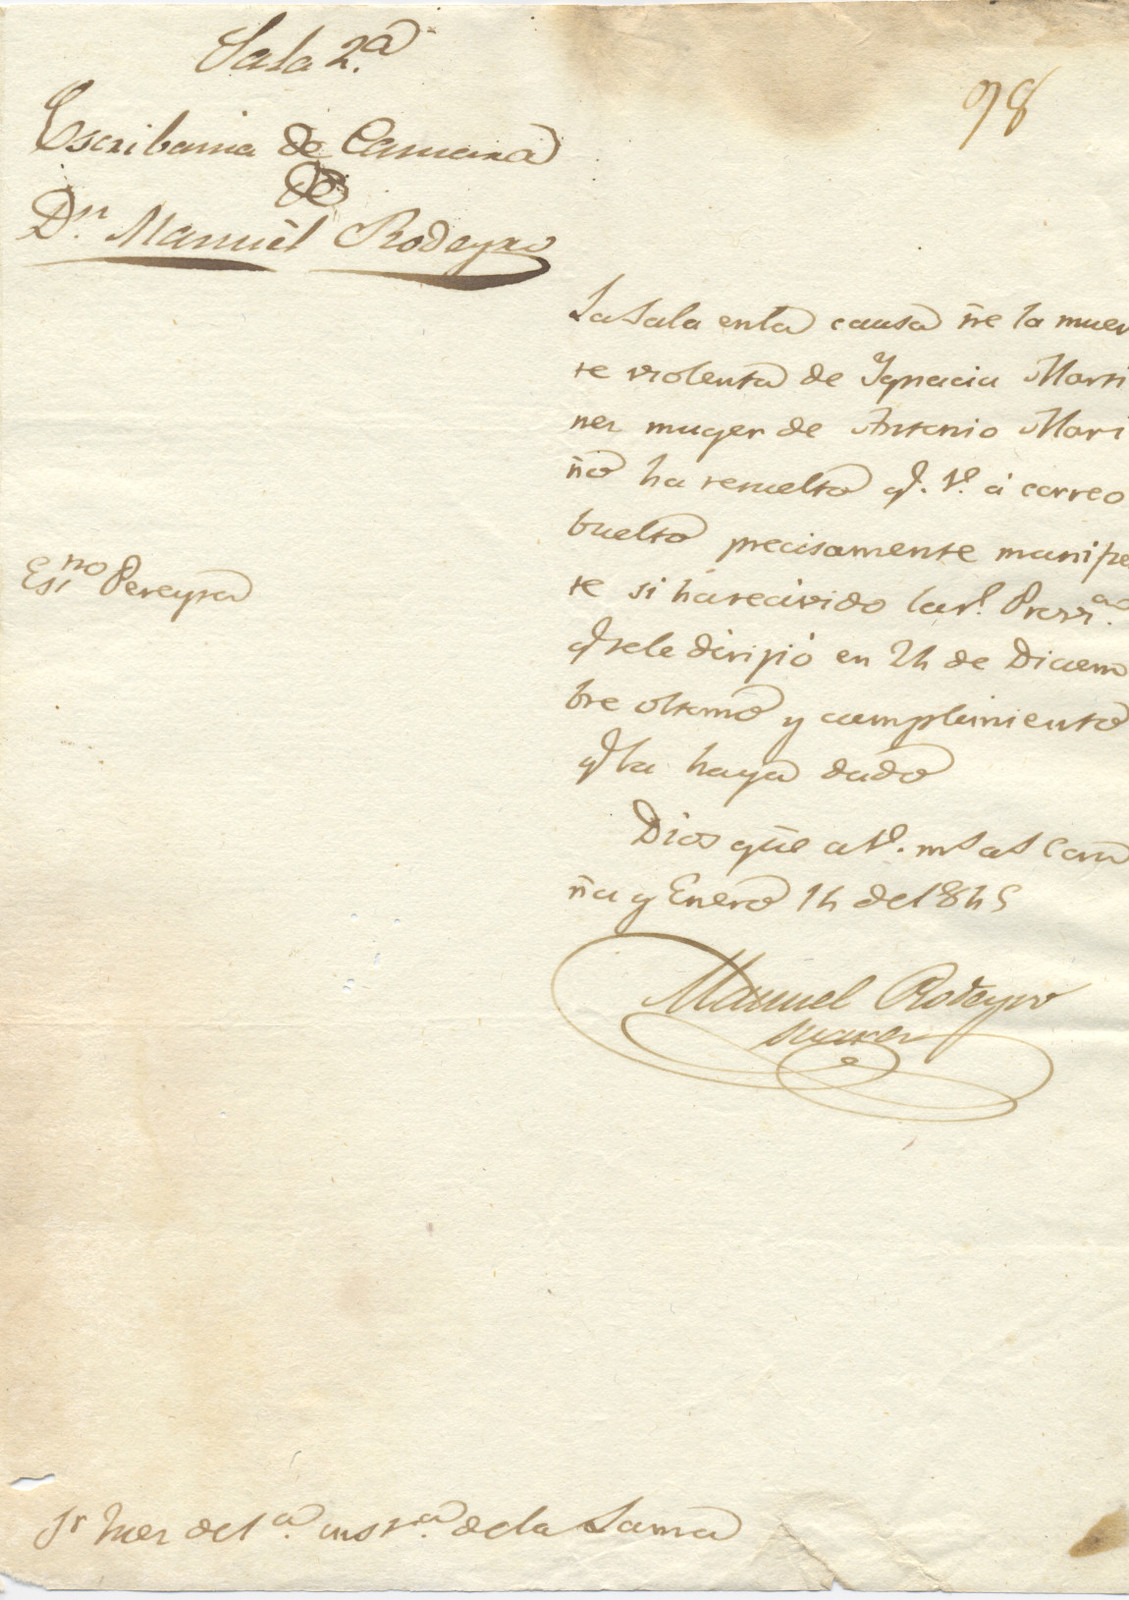 Sala 2.ª
98
Escribania de Camara
de
D.n Manuel Rodeyro
La Sala en la causa sre la muer
te violenta de Ignacia Marti
nez muger de Antonio Mari
ño ha resuelto q.e V. á correo
buelto precisamente manifies
te si ha recivido la r.l Provi.on
q.e se le dirijió en 24 de Diciem
bre ultimo y cumplimiento
q.e la haya dado
Es.no Pereyra
Dios gûe a V. m.s a.s Coru
ña y Enero 14 de 1845
Manuel Rodeyro
Suarez
S.r Juez de 1.ª ins.ª de la Lama